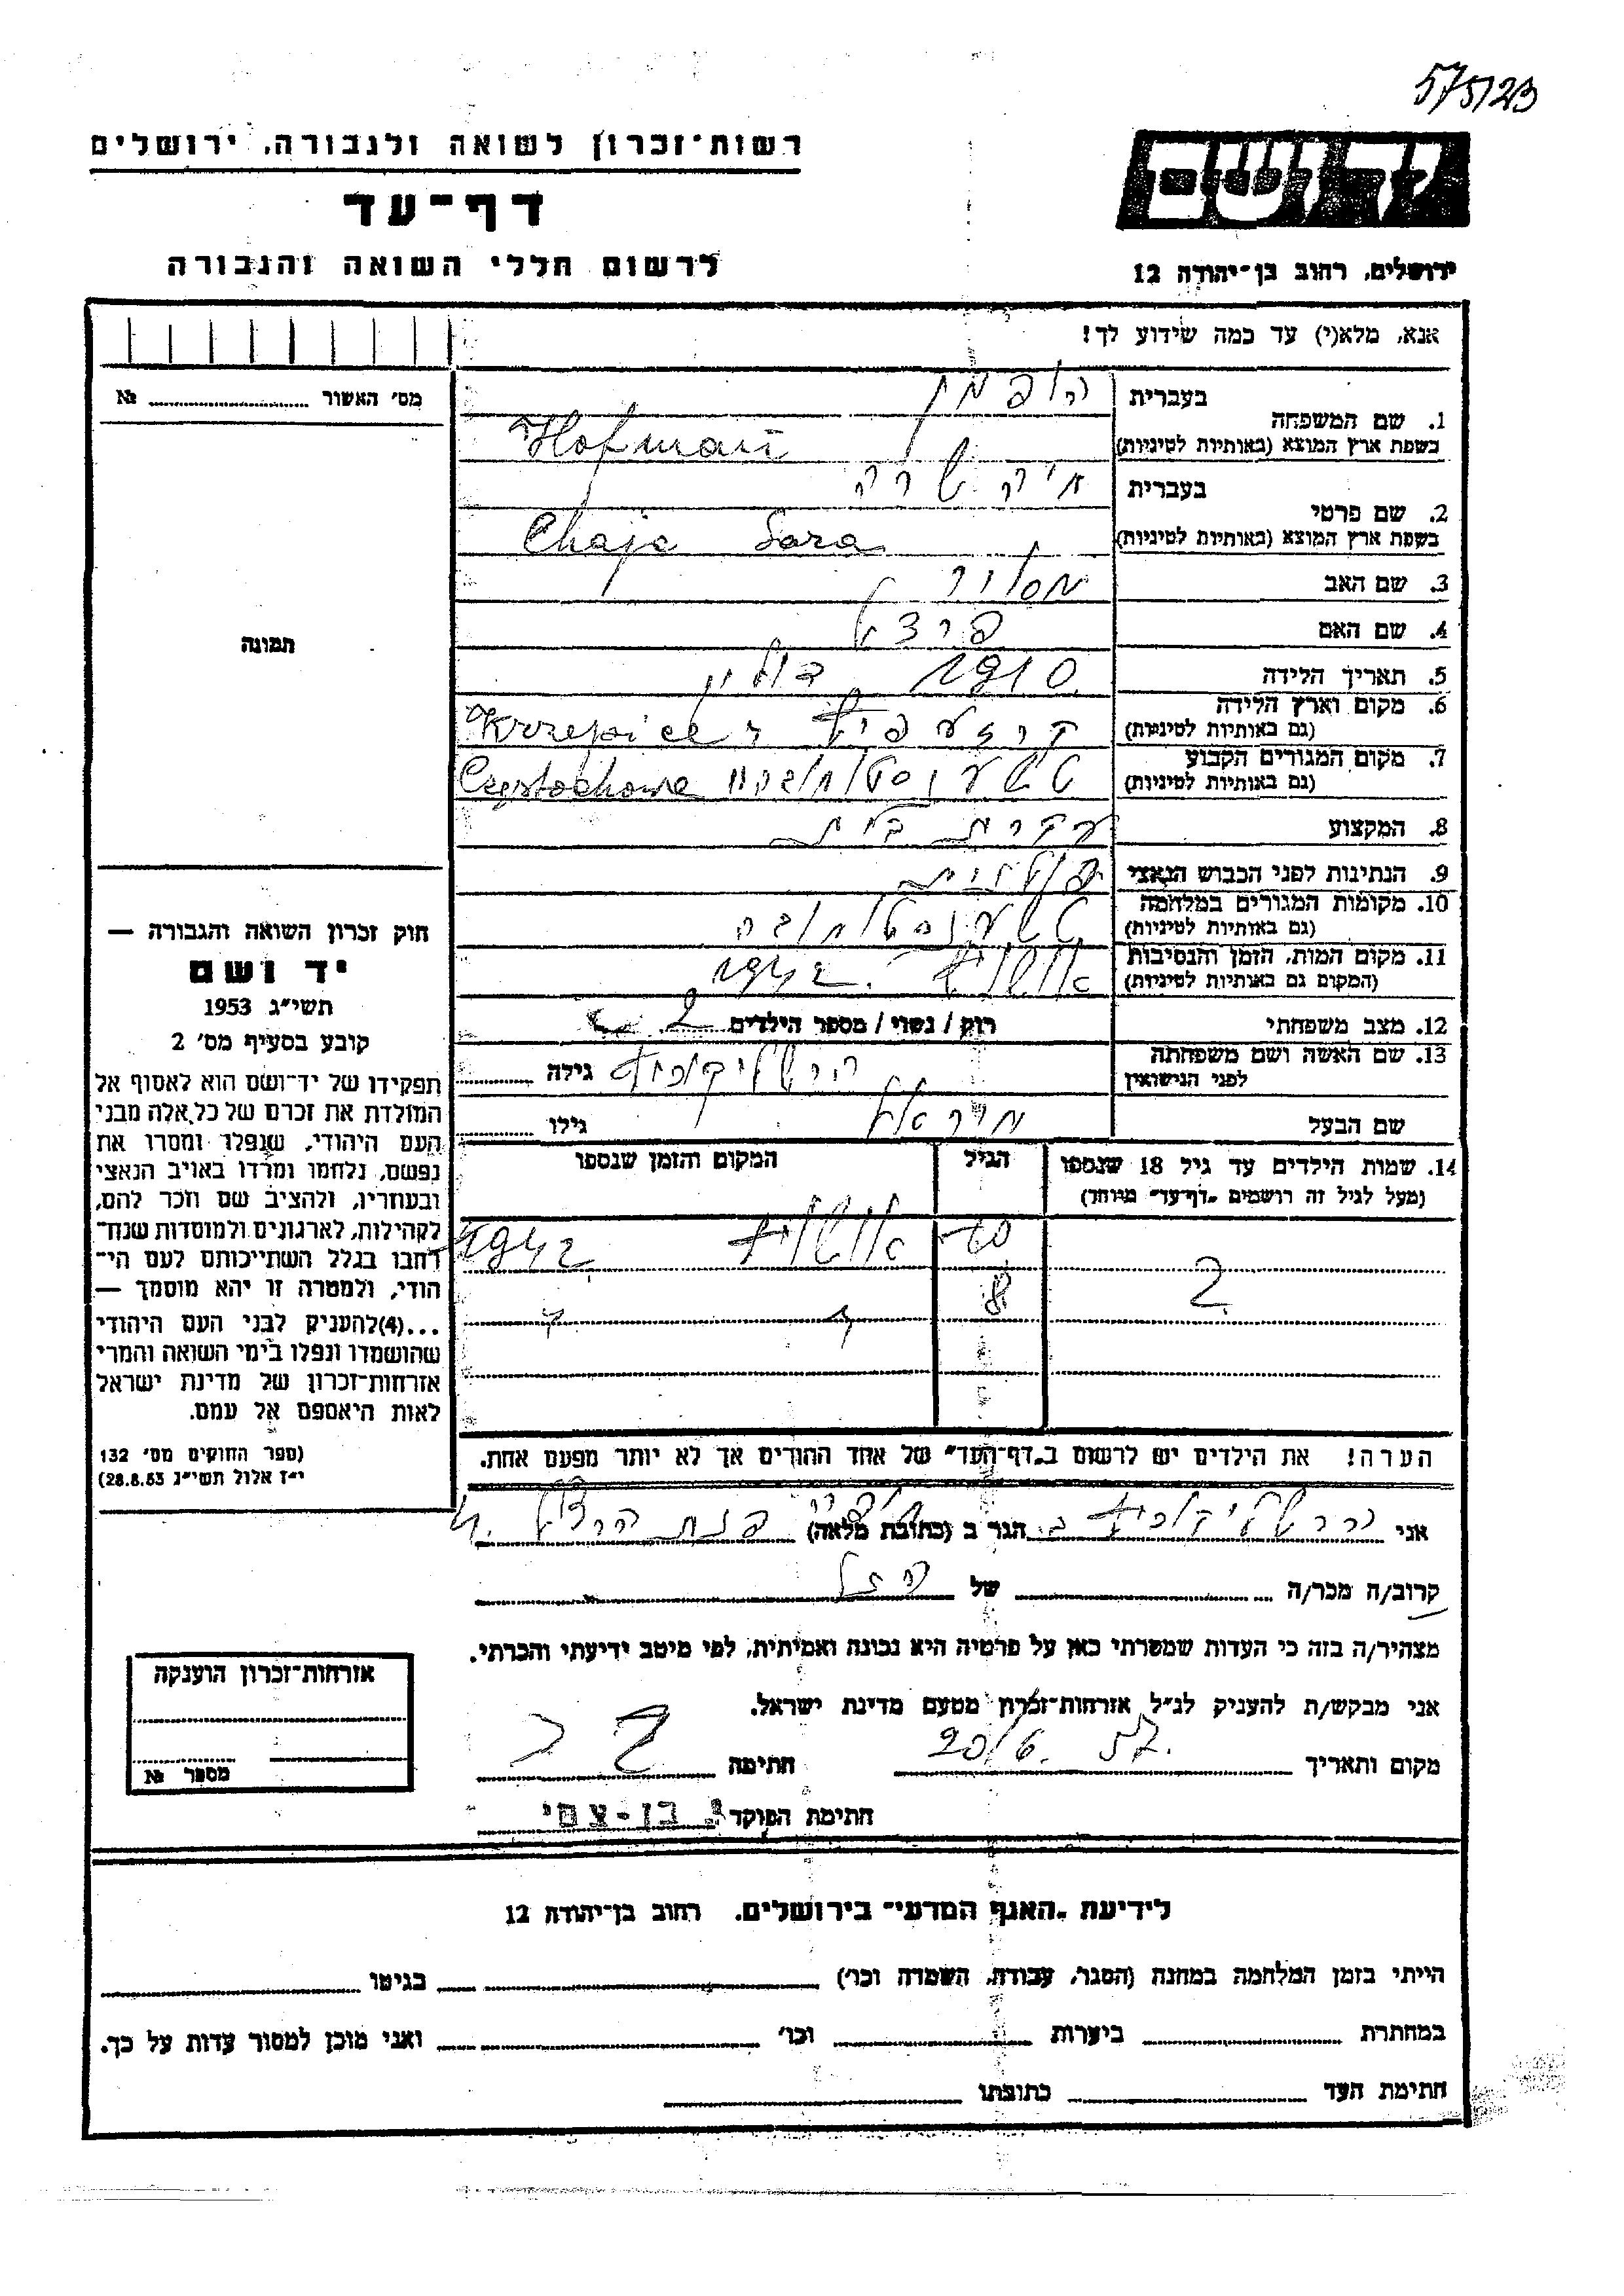 57523
רשות־זכרון לשואה ולגבורה, ירושלים
דף־עד
לרשום חללי השואה והגבורה
ידושם
ירושלים, רחוב בן־יהודה 12
אנא, מלא(י) עד כמה שידוע לך!
מס׳ האשור №
1. שם המשפחה
בעברית הופמן
בשפת ארץ המוצא (באותיות לטיניות) Hofman
2. שם פרטי
בעברית חיה שרה
בשפת ארץ המוצא (באותיות לטיניות) Chaja Sara
3. שם האב
4. שם האם פרדל
תמונה
5. תאריך הלידה 1910 פולין
6. מקום וארץ הלידה
(גם באותיות לטיניות) Krzepice
7. מקום המגורים הקבוע
(גם באותיות לטיניות) טשענסטוחובה Częstochowa
8. המקצוע עקרת בית
9. הנתינות לפני הכבוש הנאצי פולנית
10. מקומות המגורים במלחמה
(גם באותיות לטיניות) טשענסטוחובה
11. מקום המות, הזמן והנסיבות
(המקום גם באותיות לטיניות) אושויץ 1942
12. מצב משפחתי רווק / נשוי / מספר הילדים 2
13. שם האשה ושם משפחתה
לפני הנישואין הרשליקוביץ גילה
שם הבעל גילו
14. שמות הילדים עד גיל 18 שנספו
(מעל לגיל זה רושמים „דף־עד״ מיוחד)
הגיל
המקום והזמן שנספו
2
10 אושויץ 1942
8 " "
הערה! את הילדים יש לרשום ב„דף־העד״ של אחד ההורים אך לא יותר מפעם אחת.
חוק זכרון השואה והגבורה —
יד ושם
תשי״ג 1953
קובע בסעיף מס׳ 2
תפקידו של יד־ושם הוא לאסוף אל
המולדת את זכרם של כל אלה מבני
העם היהודי, שנפלו ומסרו את
נפשם, נלחמו ומרדו באויב הנאצי
ובעוזריו, ולהציב שם וזכר להם,
לקהילות, לארגונים ולמוסדות שנח־
רבו בגלל השתייכותם לעם הי־
הודי, ולמטרה זו יהא מוסמך —
...(4)להעניק לבני העם היהודי
שהושמדו ונפלו בימי השואה והמרי
אזרחות־זכרון של מדינת ישראל
לאות היאספם אל עמם.
(ספר החוקים מס׳ 132
י״ז אלול תשי״ג 28.8.53)
אני הרשליקוביץ הגר ב (כתובת מלאה)
קרוב/ה מכר/ה של
מצהיר/ה בזה כי העדות שמסרתי כאן על פרטיה היא נכונה ואמיתית, לפי מיטב ידיעתי והכרתי.
אני מבקש/ת להעניק לנ״ל אזרחות־זכרון מטעם מדינת ישראל.
מקום ותאריך 20/6. 57. חתימה
חתימת הפוקד
אזרחות־זכרון הוענקה
מספר №
לידיעת „האגף המדעי״ בירושלים, רחוב בן־יהודה 12
הייתי בזמן המלחמה במחנה (הסגר, עבודה, השמדה וכו׳) בגיטו
במחתרת ביערות וכו׳ ואני מוכן למסור עדות על כך.
חתימת העד כתובתו